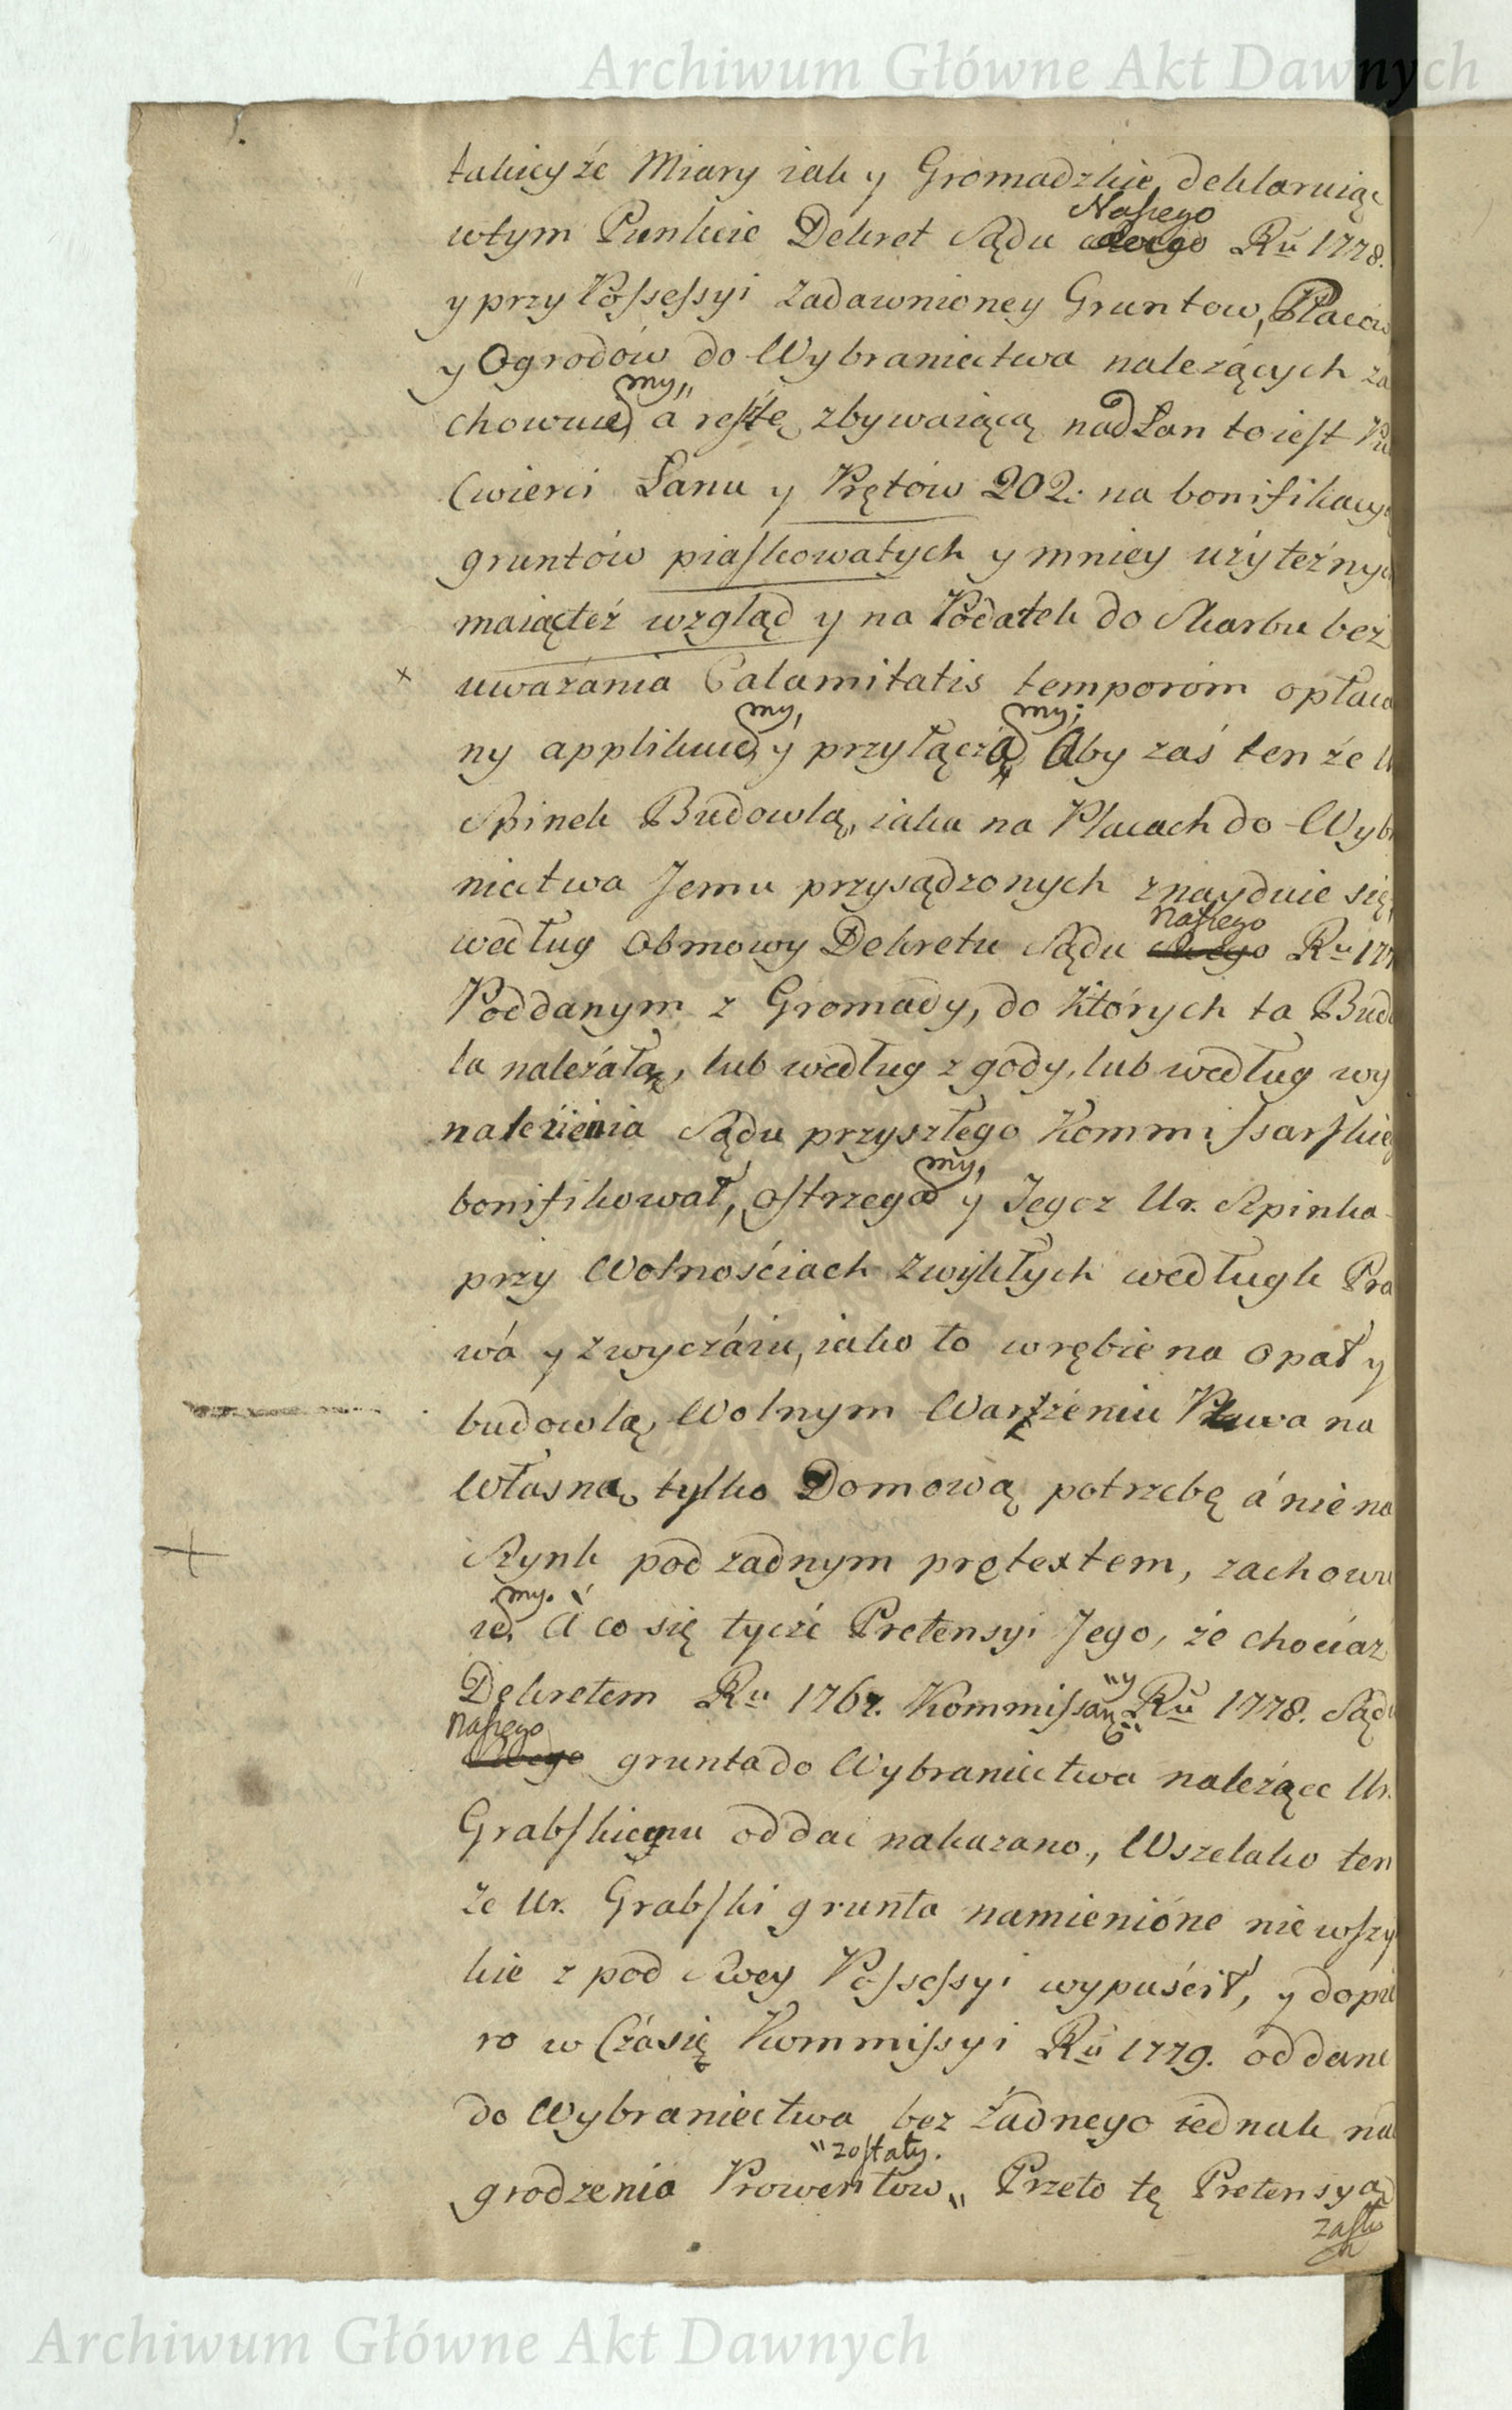 Archiwum Główne Akt Dawnych
takieyże Miary iak y Gromadzkie, deklaruiąc
Naszego
wtym Punkcie Dekret Sądu Ru 1778.
y przy Possessyi zadawnioney Gruntow, Placow
y Ogrodów do Wybraniectwa należących za
my,,
chowuie, á resztę zbywaiącą nad Łan toiest
Cwierci Łanu y Prętów 202. na bonifikacyą
gruntów piaskowatych y mniey użyteżnych
maiącteż wzgląd y na Podatek do Skarbu bez
x uważania Calamitatis temporom opłaca
my, my;
ny applikuie, y przyłącza Aby zaś tenże U
Szpinek Budowlą, iaka na Placach do Wybr
niectwa Jemu przysądzonych znayduie się,
naszego
według obmowy Dekretu Sądu Ru 177
Poddanym z Gromady, do których ta Budo
la należała, lub według zgody, lub według wy
nalezienia Sądu przyszłego Kommissarskieg
my,
bonifikował, ostrzega y Tegoz Ur. Szpinka
przy Wolnościach zwykłych wedługh Pra
wá y zwyczáiu, iako to wrębie na opał y
budowlą, Wolnym Warzżeniu Piwa na
własną, tylko Domową potrzebę á nie na
Szynk pod zadnym prętextem, zachowu
my.
ie. A co się tycze Pretensyi Jego, że chociaz
"y
Dekretem Ru 1767. Kommissar. Ru 1778. Sądu
naszego
grunta do Wybraniectwa należące Ur.
Grabskiemu oddac nakazano, Wszelako ten
że Ur. Grabski grunta namienióne nie wszy
kie z pod Swey Possessyi wypuścił, y dopie
ro w Czásię Kommissyi Ru 1779. oddane
do Wybraniectwa bez żadnego iednak na
"zostały.
grodzenia Prowentow,, Przeto tę Pretensyą
Archiwum Główne Akt Dawnych